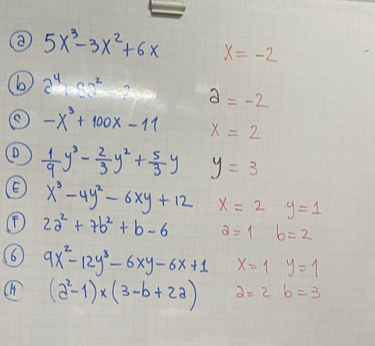 a 5x³-3x²+6x x=-2
b a⁴+8a²-2 a=-2
c -x³+100x-11 x=2
D 1/9 y³-2/3 y²+5/3 y y=3
E x³-4y²-6xy+12 x=2 y=1
F 2a²+7b²+b-6 a=1 b=2
G 9x²-12y³-6xy-6x+1 x=1 y=1
H (a²-1)×(3-b+2a) a=2 b=3